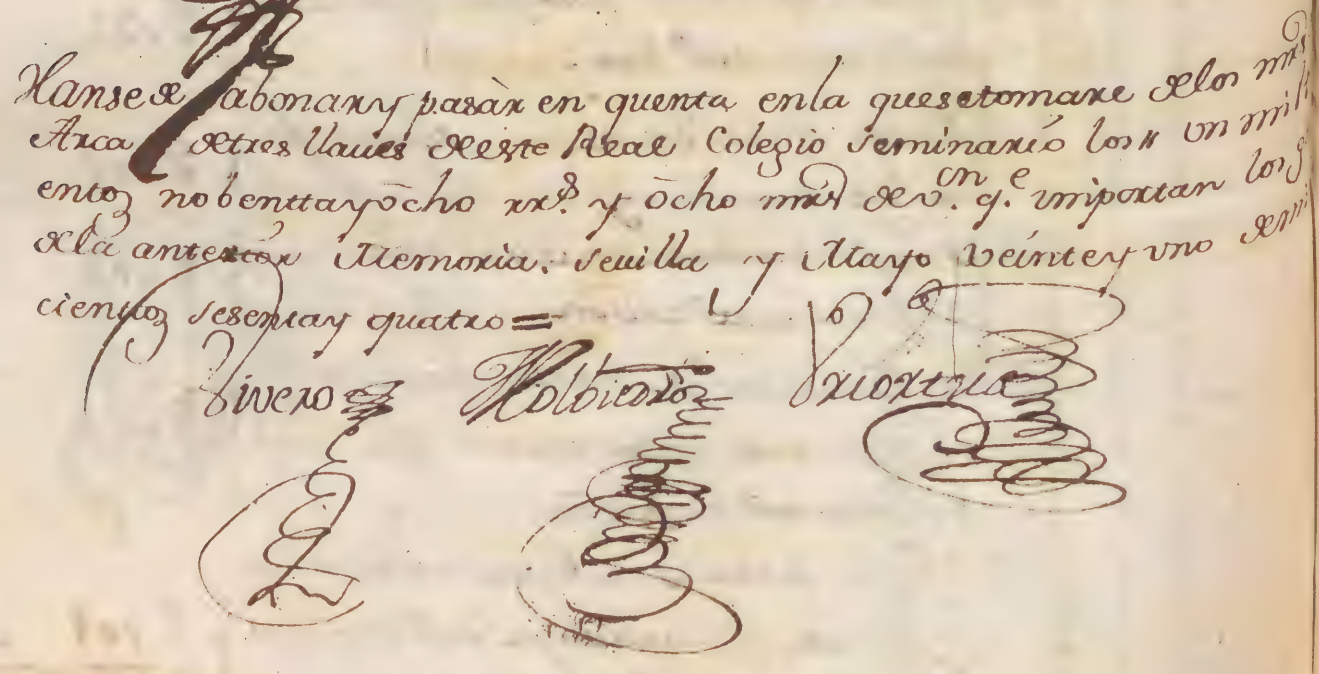 Hanse de abonar y pasàr en quenta en la que se tomare de los mrs
Arca de tres llaues de este Real Colegio seminario los un mil
entos nobentta y ôcho rrs. y ôcho mrs de von. qe. importan los g
de la anterior Memoria. Seuilla y Mayo Veinte y uno de
cientos sesenta y quatro =
Vivero